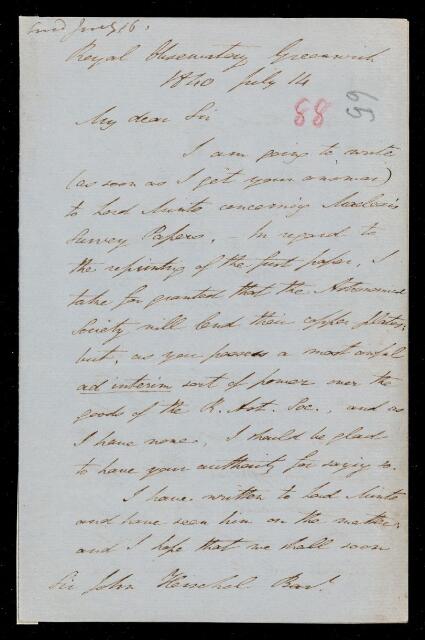 Royal Observatory Greenwich
1840 July 14
88
59
My dear Sir
I am going to write
(as soon as I get your answer)
to Lord Minto concerning Maclear's
Survey Papers. – In regard to
the reprinting of the first paper, I
take for granted that the Astronomical
Society will lend their copper plates:
but, as you possess a most awful
ad interim sort of power over the
goods of the R. Ast. Soc., and as
I have none, I should be glad
to have your authority for saying so.
I have written to Lord Minto
and have seen him on the matter,
and I hope that we shall soon
Sir John Herschel Bart.